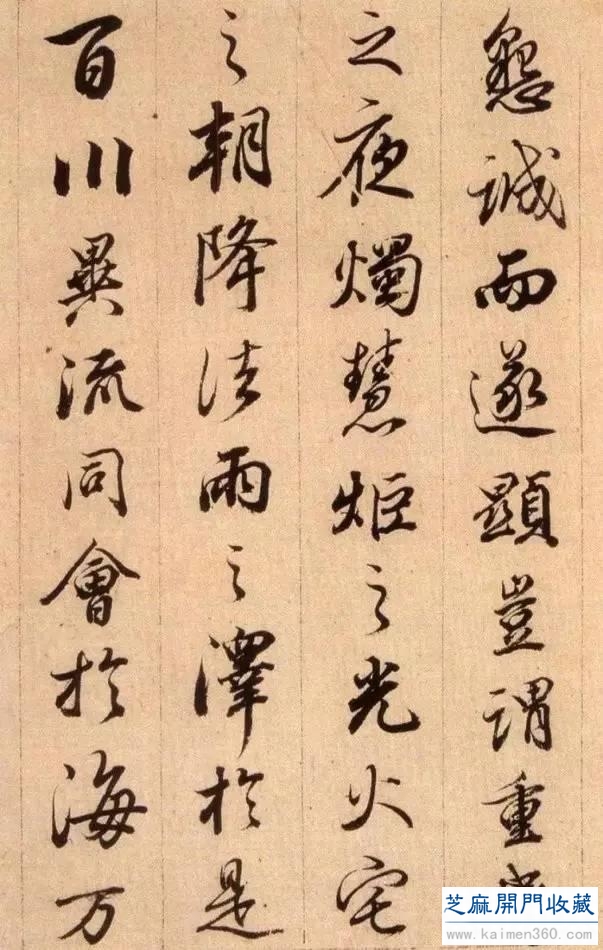 懇誠而遂顯豈謂重
之夜燭慧炬之光火宅
之朝降法雨之澤於是
百川異流同會於海万
芝麻開門收藏
www.kaimen360.com